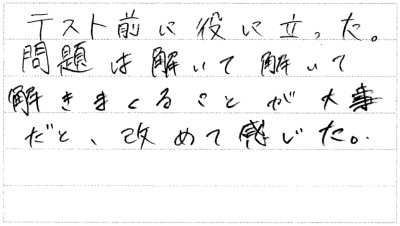 テスト前に役に立った。
問題は解いて解いて
解きまくることが大事
だと、改めて感じた。